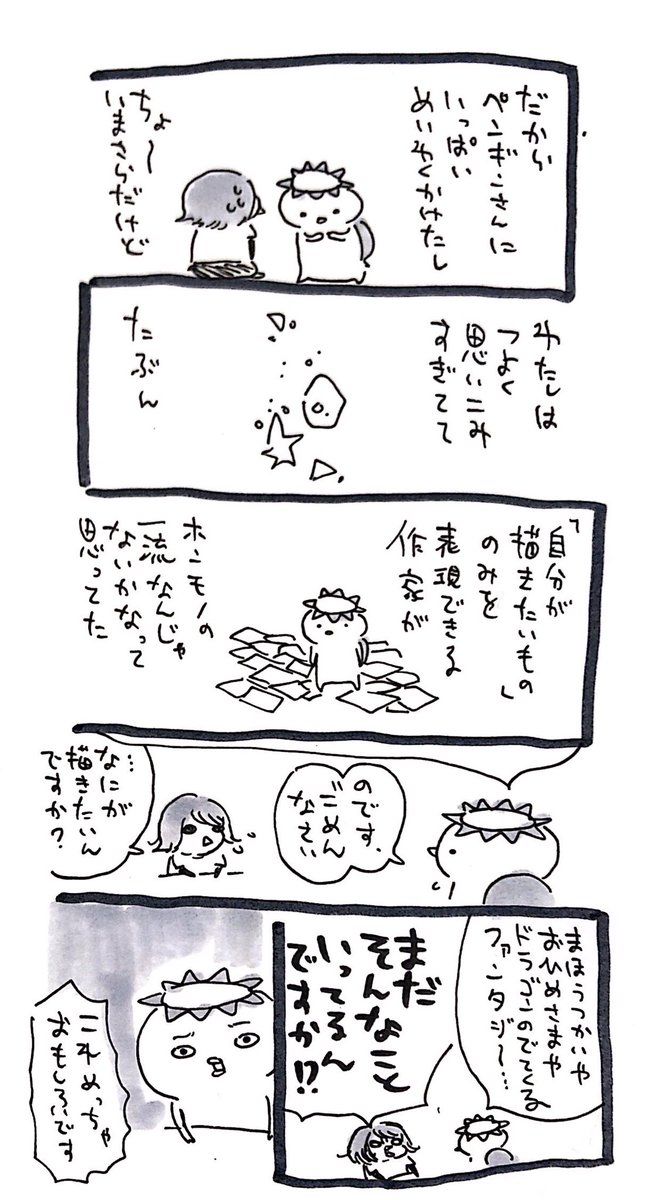 だから
ペンギンさんに
いっぱい
めいわくかけたし
ちょ〜
いまさらだけど
わたしは
つよく
思いこみ
すぎてて
たぶん
「自分が
描きたいもの」
のみを
表現できる
作家が
ホンモノの
一流なんじゃ
ないかなって
思ってた
のです、
ごめん
なさい
…
なにが
描きたいん
ですか?
まほうつかいや
おひめさまや
ドラゴンのでてくる
ファンタジ〜…
まだ
そんなこと
いってるん
ですか!?
これめっちゃ
おもしろいです